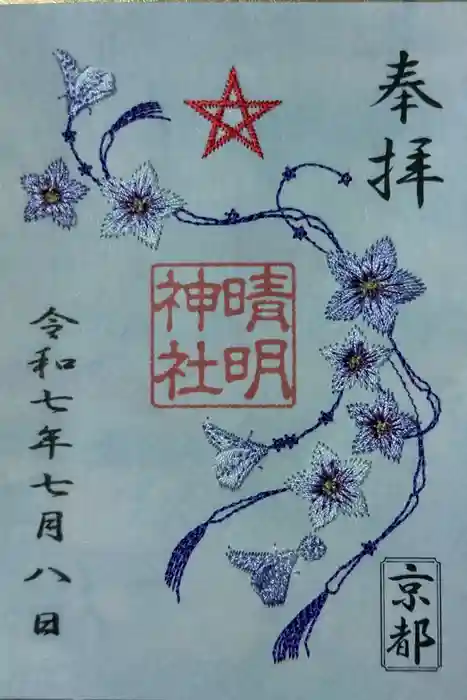 奉拝
晴明
神社
京都
令和七年七月八日